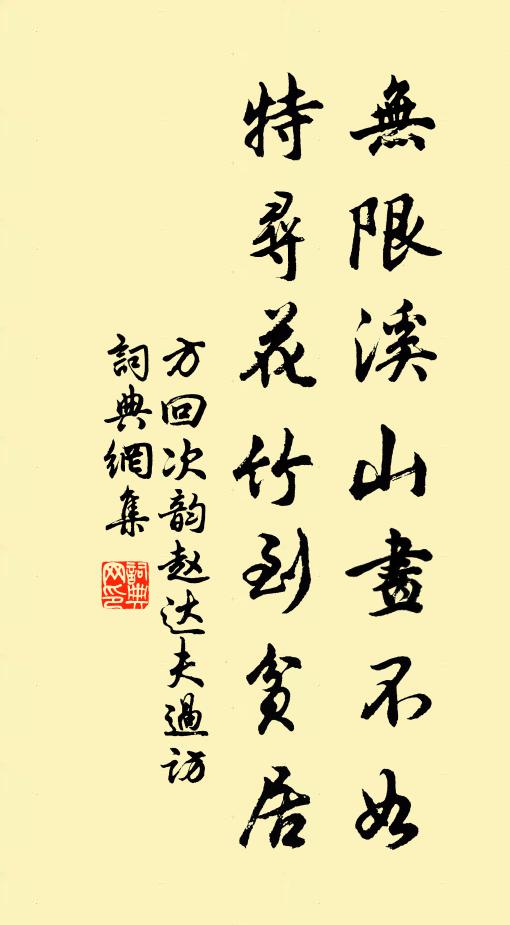 無限溪山畫不如
特尋花竹到貧居
方回次韵赵达夫過訪
詞典網集
詞典网印